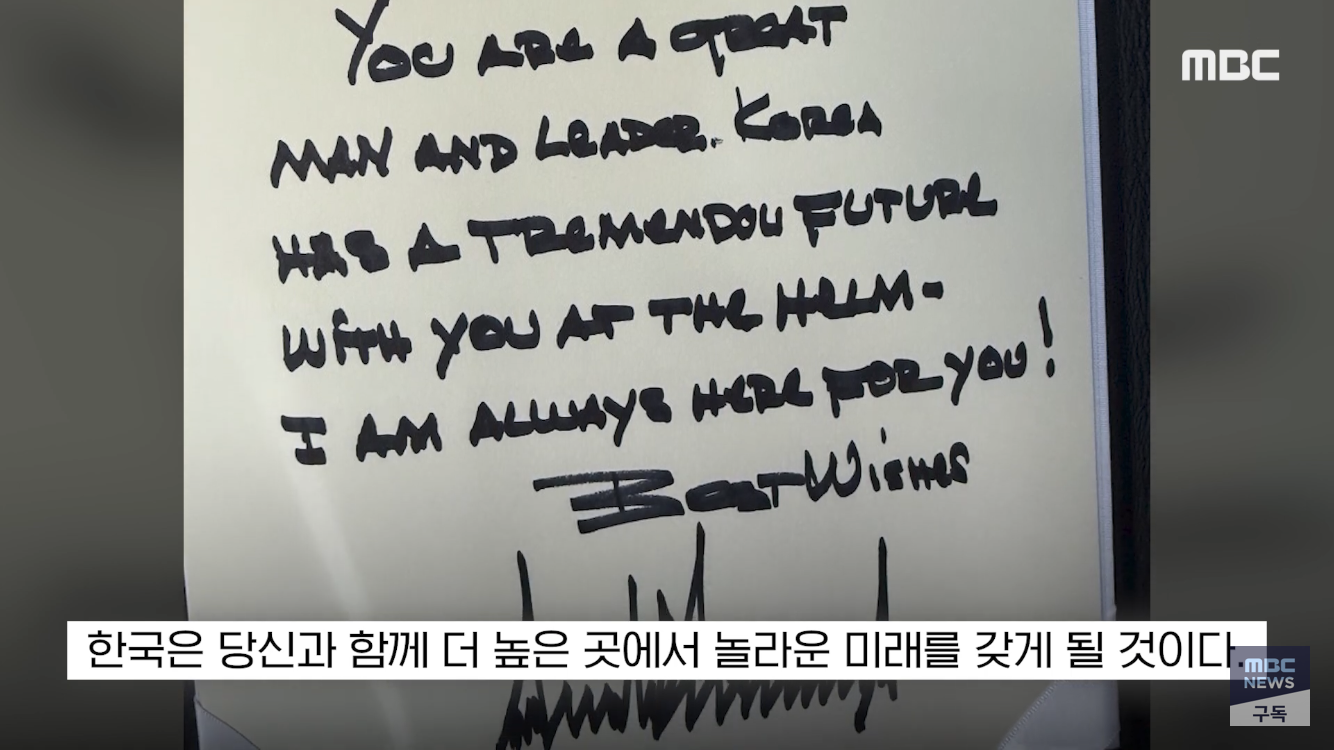 MBC
YOU ARE A GREAT
MAN AND LEADER. KOREA
HAS A TREMENDOU FUTURE
WITH YOU AT THE HELM-
I AM ALWAYS HERE FOR YOU!
BEST WISHES
한국은 당신과 함께 더 높은 곳에서 놀라운 미래를 갖게 될 것이다.
MBC
NEWS
구독